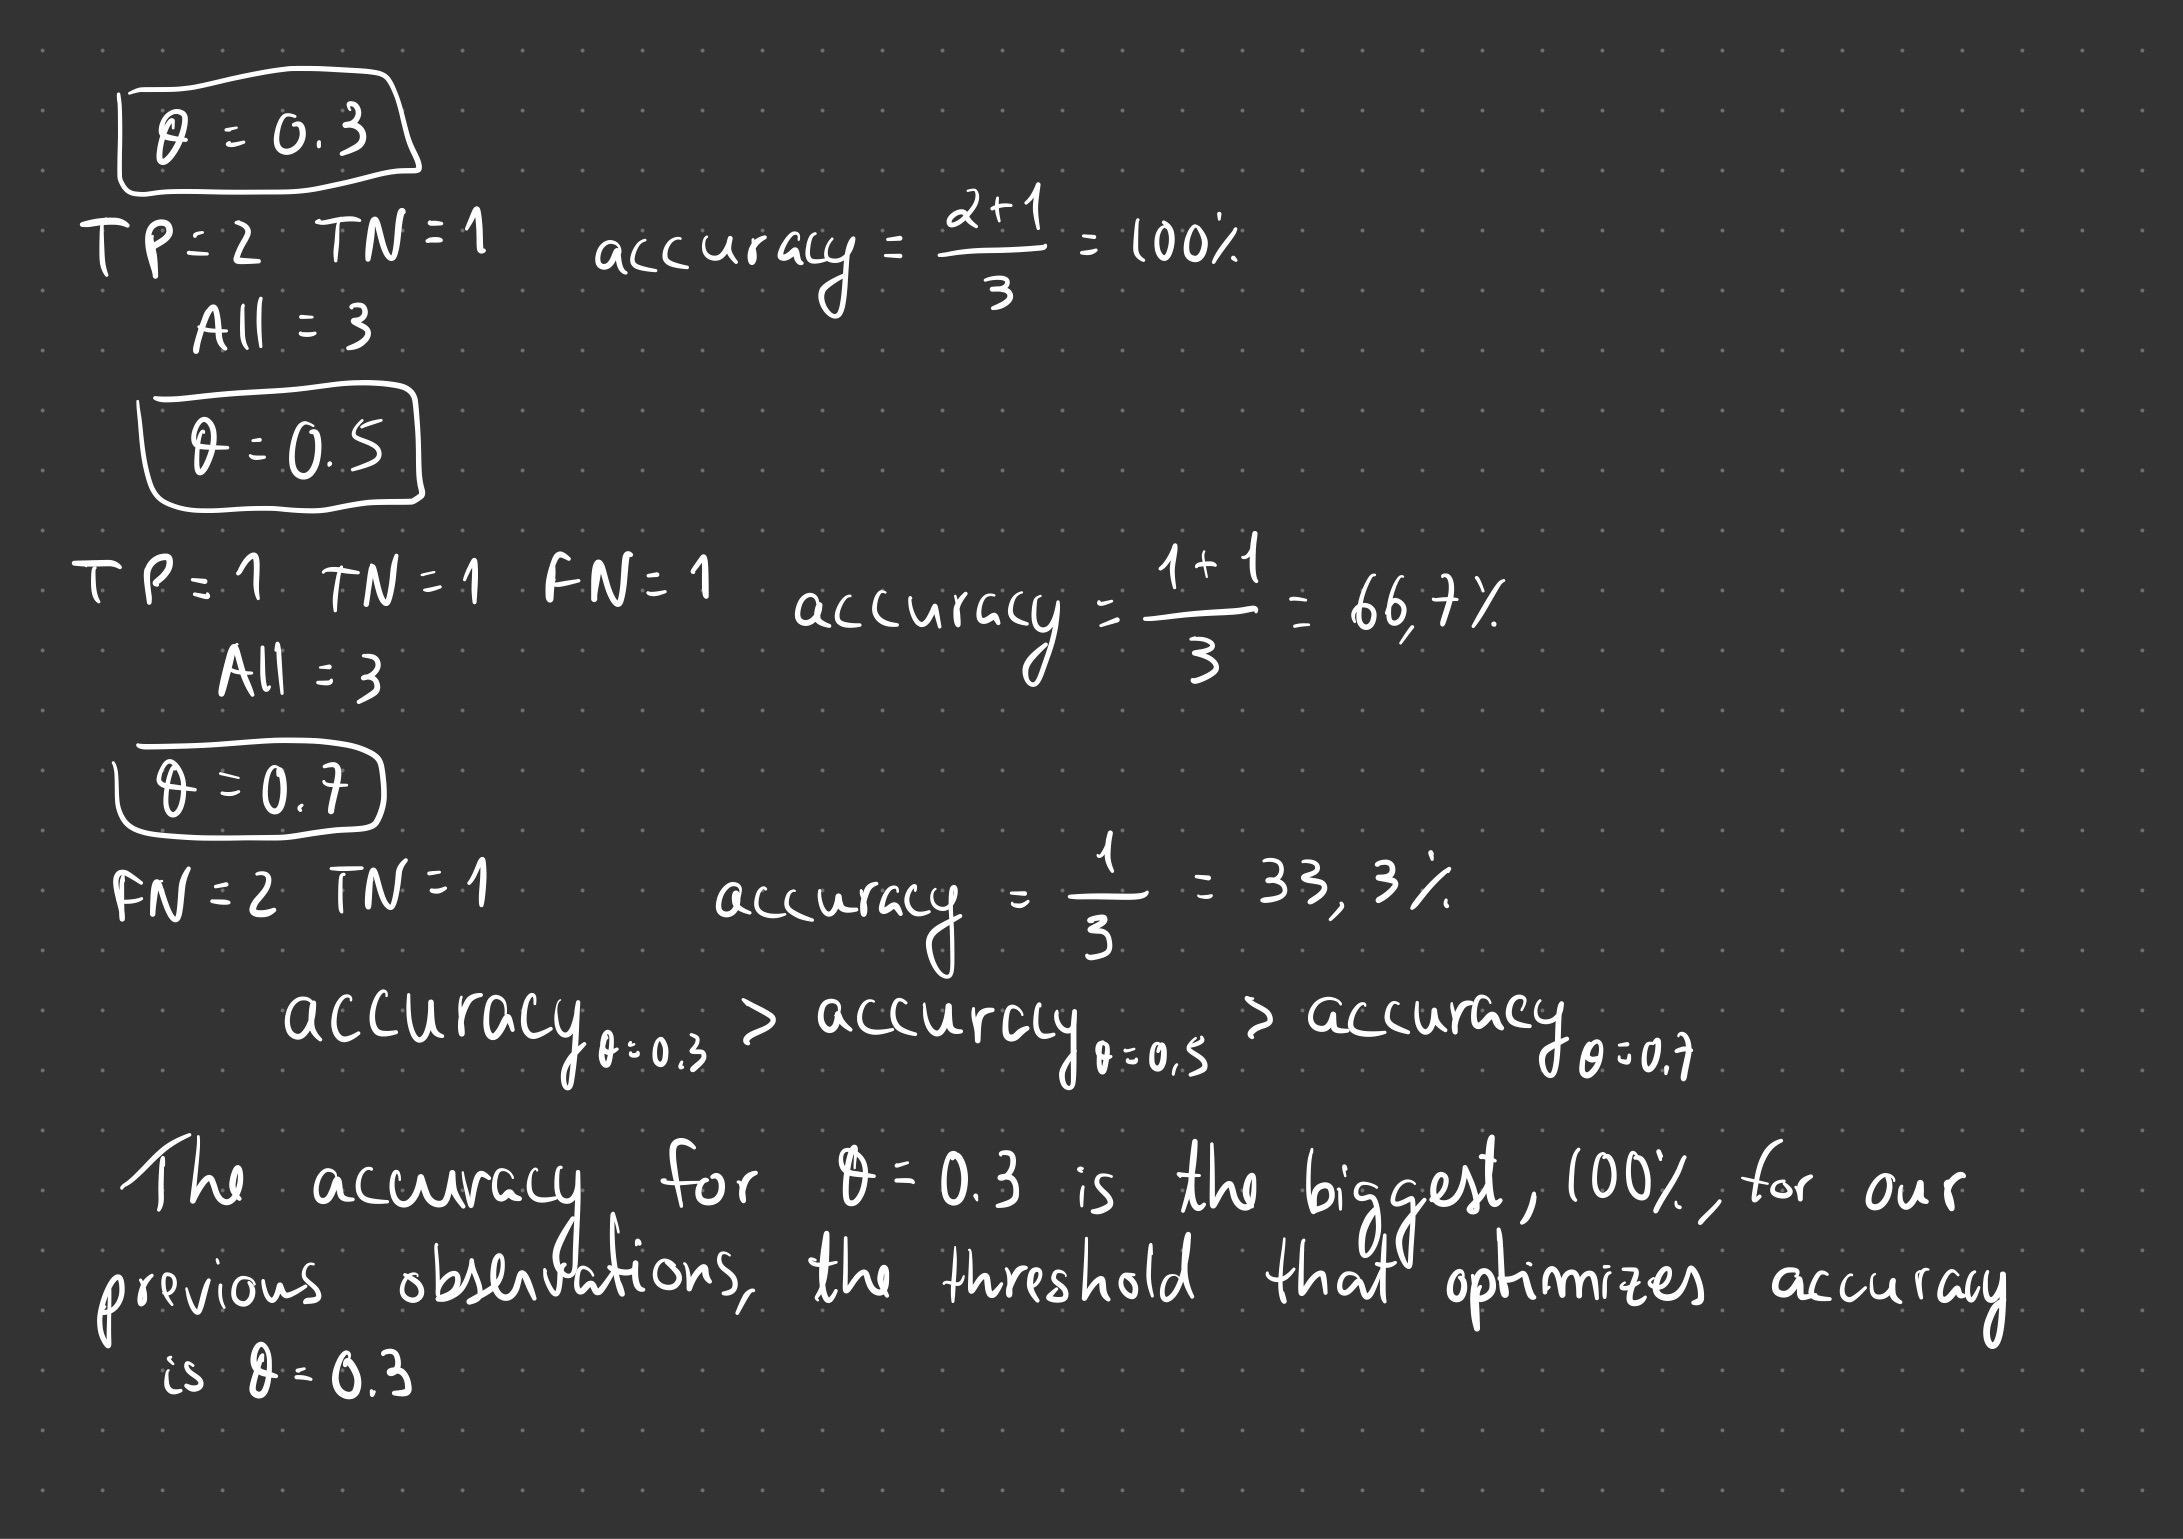 θ = 0.3
TP = 2 TN = 1 accuracy = (2+1)/3 = 100%
All = 3
θ = 0.5
TP = 1 TN = 1 FN = 1 accuracy = (1+1)/3 = 66,7%
All = 3
θ = 0.7
FN = 2 TN = 1 accuracy = 1/3 = 33,3%
accuracy θ=0.3 > accuracy θ=0.5 > accuracy θ=0.7
The accuracy for θ = 0.3 is the biggest, 100%, for our
previous observations, the threshold that optimizes accuracy
is θ = 0.3